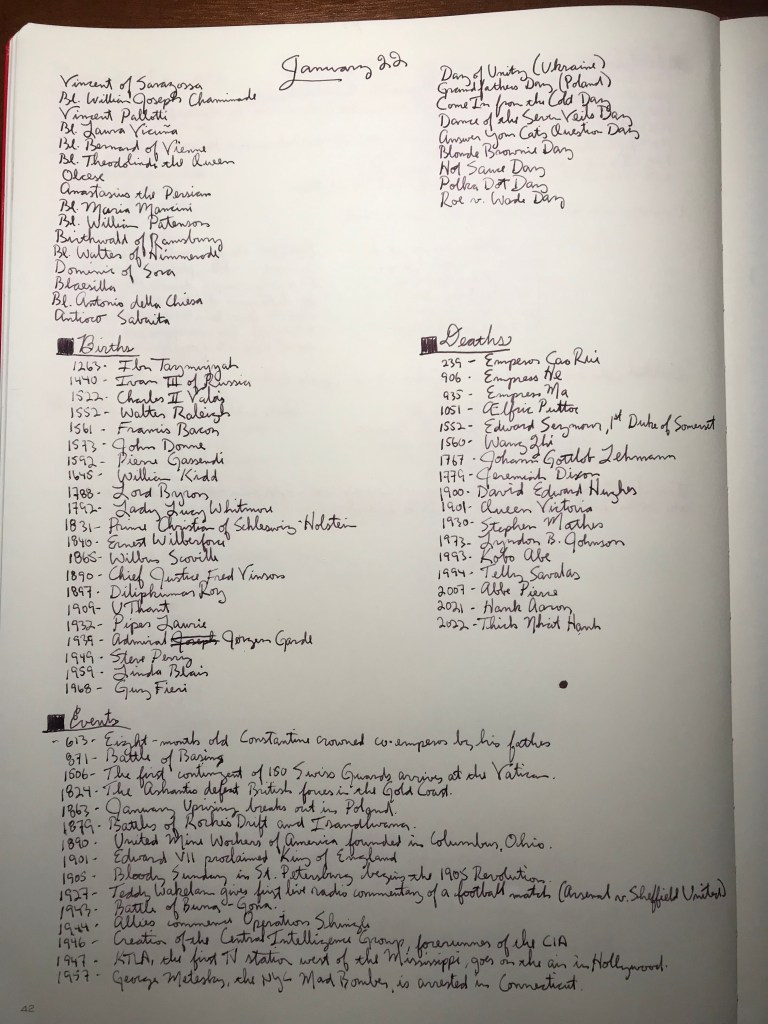 January 22
Vincent of Saragossa
Bl. William Joseph Chaminade
Vincent Pallotti
Bl. Laura Vicuña
Bl. Bernard of Vienne
Bl. Theodolinda the Queen
Olcese
Anastasius the Persian
Bl. Maria Mancini
Bl. William Patenson
Birthwald of Ramsbury
Bl. Walter of Himmerode
Dominic of Sora
Blaesilla
Bl. Antonio della Chiesa
Antioco Sabaita
Day of Unity (Ukraine)
Grandfathers Day (Poland)
Come In from the Cold Day
Dance of the Seven Veils Day
Answer Your Cats Question Day
Blonde Brownie Day
Hot Sauce Day
Polka Dot Day
Roe v. Wade Day
Births
1263- Ibn Taymiyyah
1440- Ivan III of Russia
1522- Charles II Valois
1552- Walter Raleigh
1561- Francis Bacon
1573- John Donne
1592- Pierre Gassendi
1645- William Kidd
1788- Lord Byron
1792- Lady Lucy Whitmore
1831- Prince Christian of Schleswig-Holstein
1840- Ernest Wilberforce
1865- Wilbur Scoville
1890- Chief Justice Fred Vinson
1897- Dilipkumar Roy
1909- U Thant
1932- Piper Laurie
1939- Admiral Jorgen Garde
1949- Steve Perry
1959- Linda Blair
1968- Guy Fieri
Deaths
239- Emperor Cao Rui
906- Empress He
935- Empress Ma
1051- Ælfric Puttoc
1552- Edward Seymour, 1st Duke of Somerset
1560- Wang Zhi
1767- Johann Gottlob Lehmann
1779- Jeremiah Dixon
1900- David Edward Hughes
1901- Queen Victoria
1930- Stephen Mather
1973- Lyndon B. Johnson
1993- Kobo Abe
1994- Telly Savalas
2007- Abbe Pierre
2021- Hank Aaron
2022- Thich Nhat Hanh
Events
- 613- Eight-month old Constantine crowned co-emperor by his father
871- Battle of Basing
1506- The first contingent of 150 Swiss Guards arrives at the Vatican.
1824- The Ashantis defeat British forces in the Gold Coast.
1863- January Uprising breaks out in Poland.
1879- Battles of Rorke's Drift and Isandlwana.
1890- United Mine Workers of America founded in Columbus, Ohio.
1901- Edward VII proclaimed King of England
1905- Bloody Sunday in St. Petersburg begins the 1905 Revolution.
1927- Teddy Wakelam gives first live radio commentary of a football match (Arsenal v. Sheffield United)
1943- Battle of Buna-Gona.
1944- Allies commence Operation Shingle
1946- Creation of the Central Intelligence Group, forerunner of the CIA
1947- KTLA, the first TV station west of the Mississippi, goes on the air in Hollywood.
1957- George Metesky, the NYC Mad Bomber, is arrested in Connecticut.
42